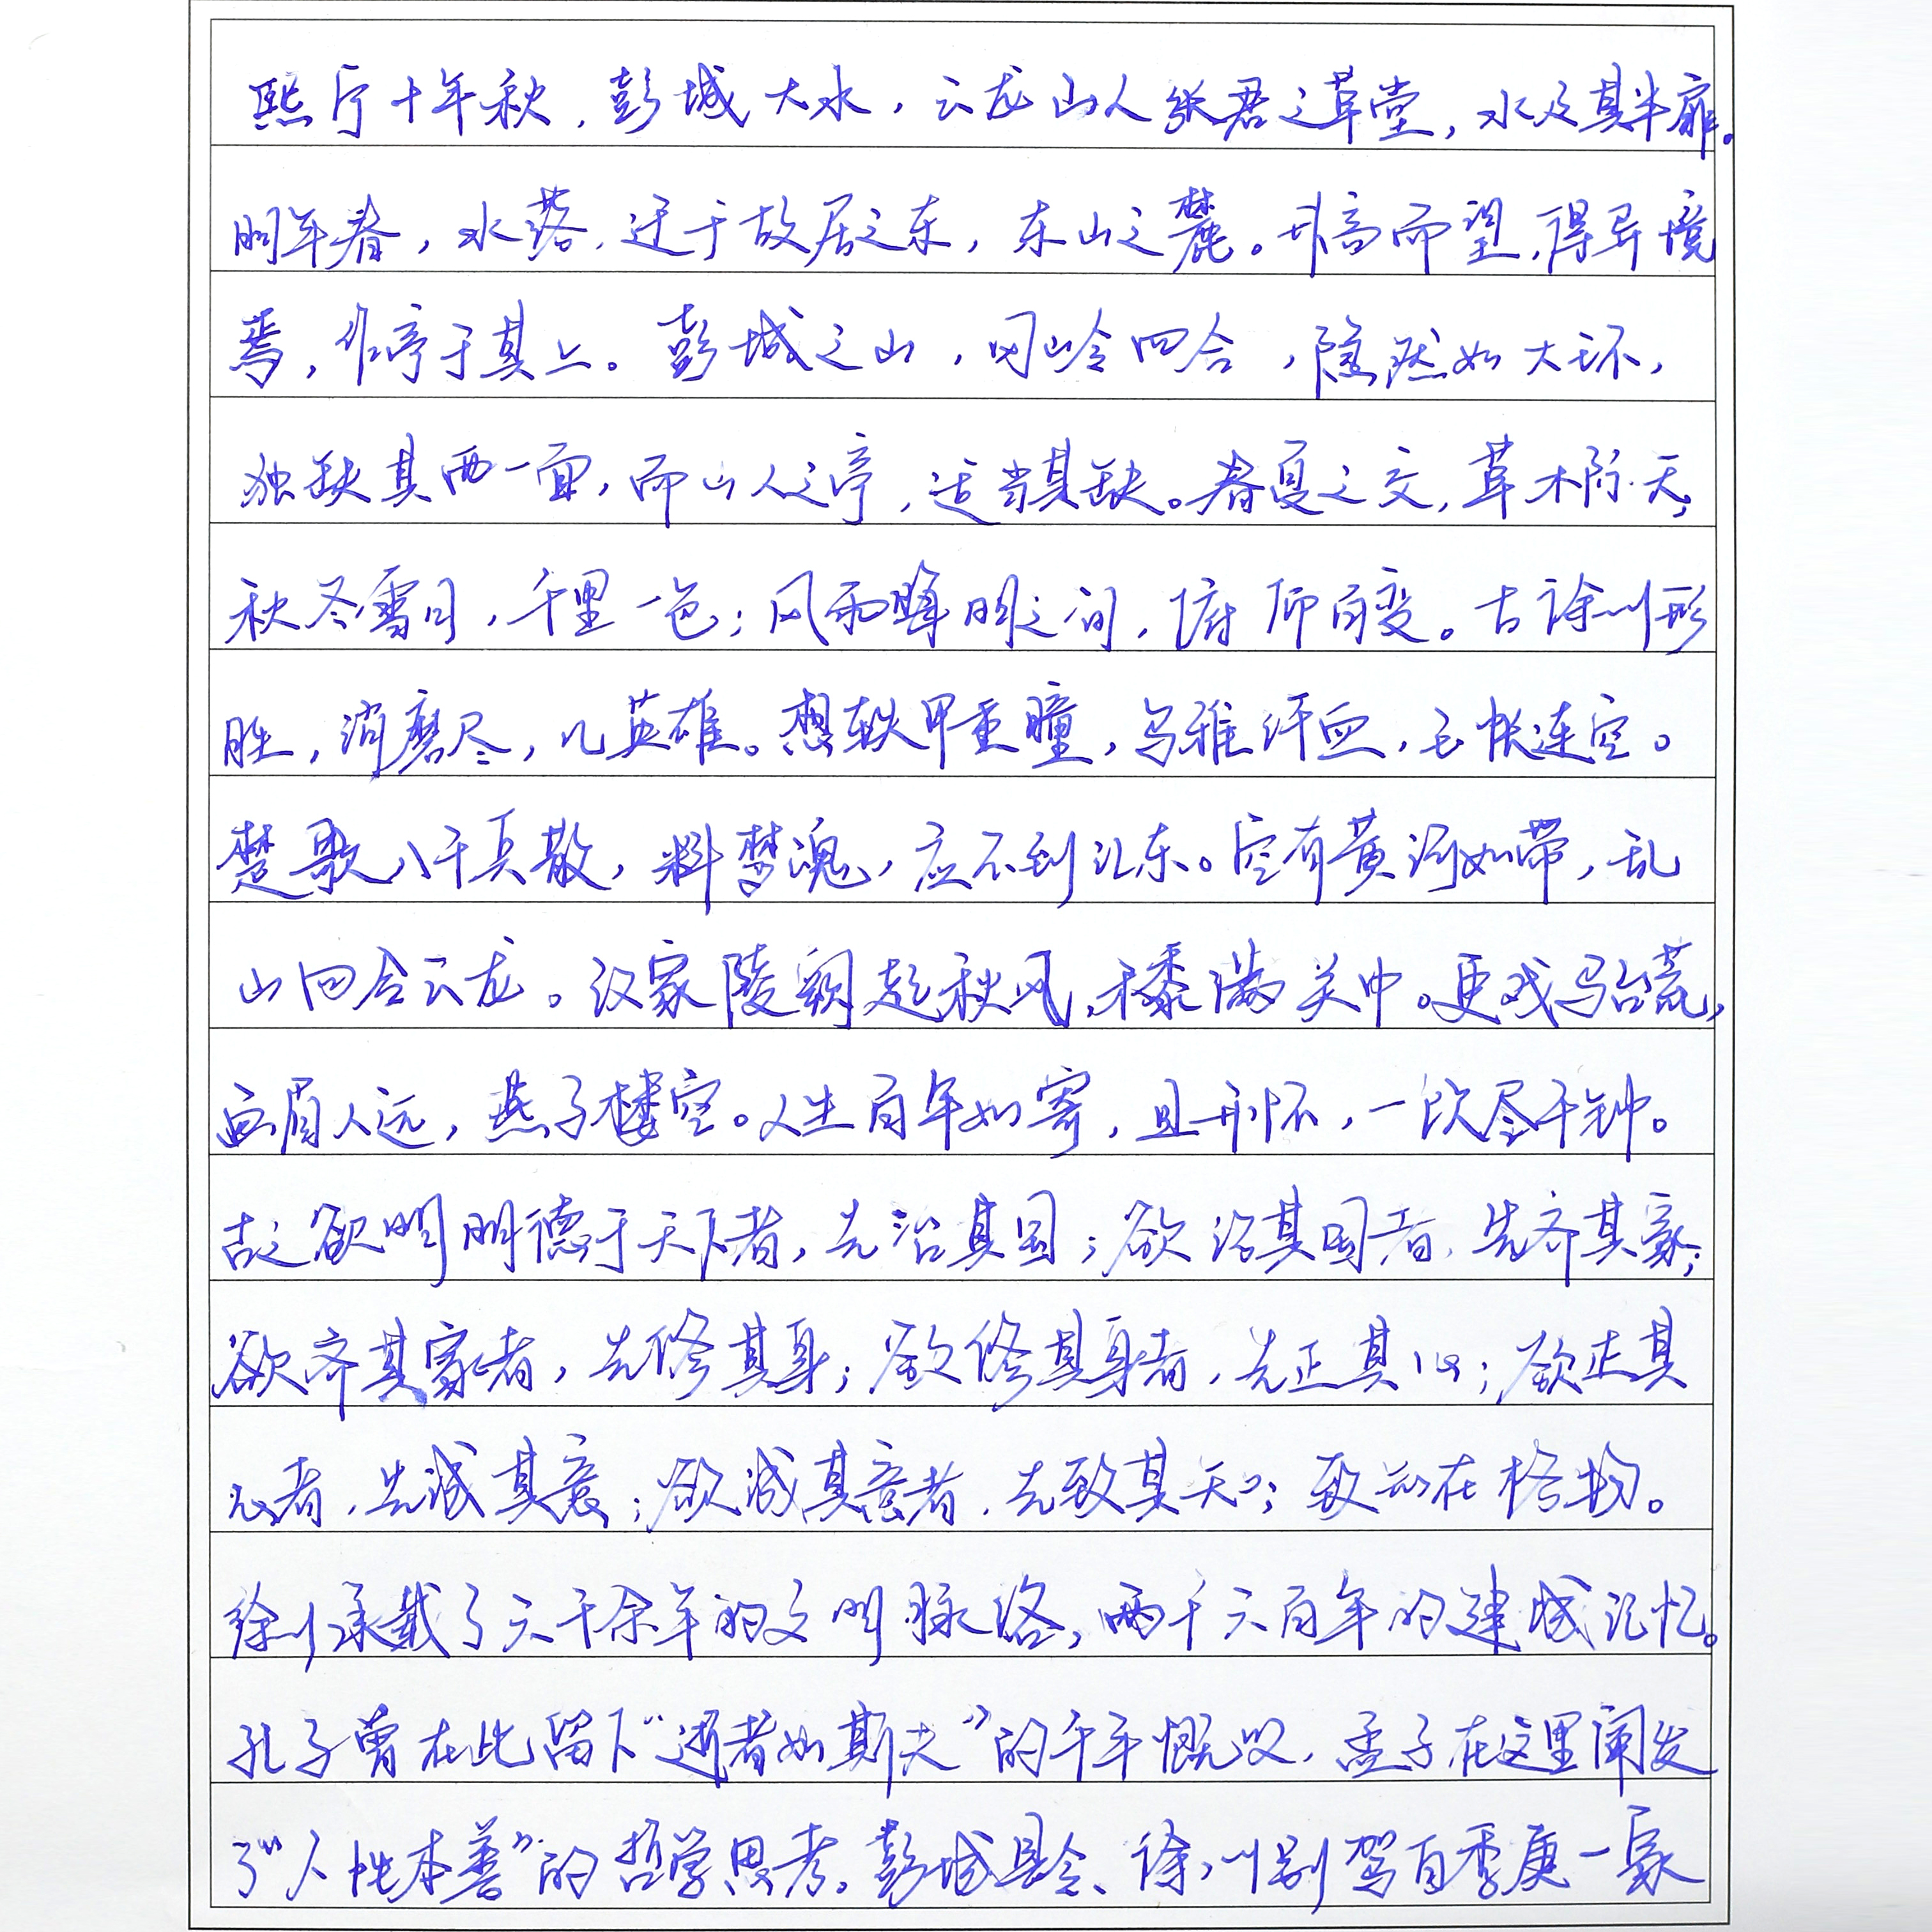 熙宁十年秋，彭城大水，云龙山人张君之草堂，水及其半扉。
明年春，水落，迁于故居之东，东山之麓。升高而望，得异境
焉，作亭于其上。彭城之山，冈岭四合，隐然如大环，
独缺其西一面，而山人之亭，适当其缺。春夏之交，草木际天；
秋冬雪月，千里一色；风雨晦明之间，俯仰百变。古徐州形
胜，消磨尽，几英雄。想铁甲重瞳，乌骓汗血，玉帐连空。
楚歌八千兵散，料梦魂，应不到江东。空有黄河如带，乱
山回合云龙。汉家陵阙起秋风，禾黍满关中。更戏马台荒，
画眉人远，燕子楼空。人生百年如寄，且开怀，一饮尽千钟。
古之欲明明德于天下者，先治其国；欲治其国者，先齐其家；
欲齐其家者，先修其身；欲修其身者，先正其心；欲正其
心者，先诚其意；欲诚其意者，先致其知；致知在格物。
徐州承载了六千余年的文明脉络，两千六百年的建城记忆。
孔子曾在此留下“逝者如斯夫”的千年慨叹，孟子在这里阐发
了“人性本善”的哲学思考。彭城县令、徐州别驾白季庚一家